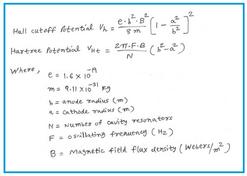 Hall cutoff Potential Vh = e·b²·B² / 8m [1 - a²/b²]²
Hartree Potential VHt = 2π·F·B / N (b²-a²)
Where,
e = 1.6 × 10⁻¹⁹
m = 9.11 × 10⁻³¹ Kg
b = anode radius (m)
a = cathode radius (m)
N = Number of cavity resonators
F = oscillating frequency (Hz)
B = Magnetic field flux density (Webers/m²)